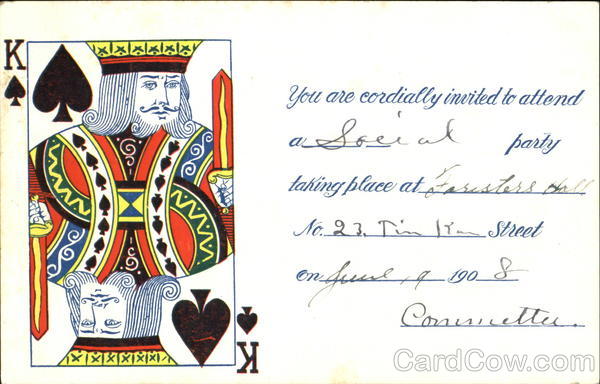 K
You are cordially invited to attend
a Social party
taking place at Foristers Hall
No. 23. Tin Kan Street
on June 9 1908
Committee.
K
CardCow.com